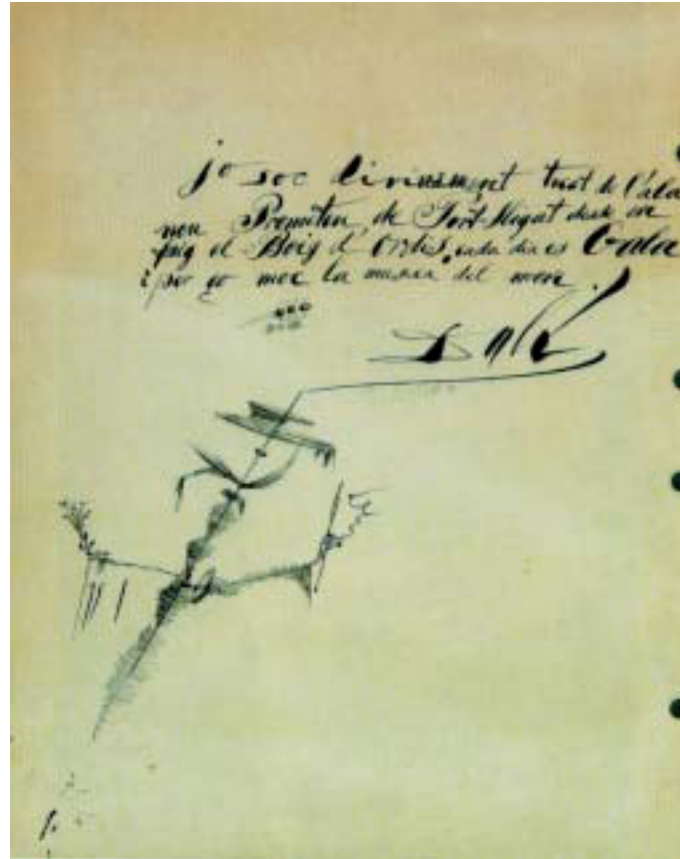 jo soc divinament tust de l'ala
nou Promiteu, de Port-Lligat desde on
puig el Boig d'Ortis, cada dia es Gala
i per ço moc la musica del mon!
Dalí